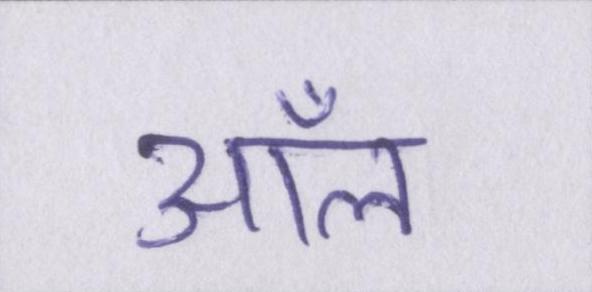 आँल